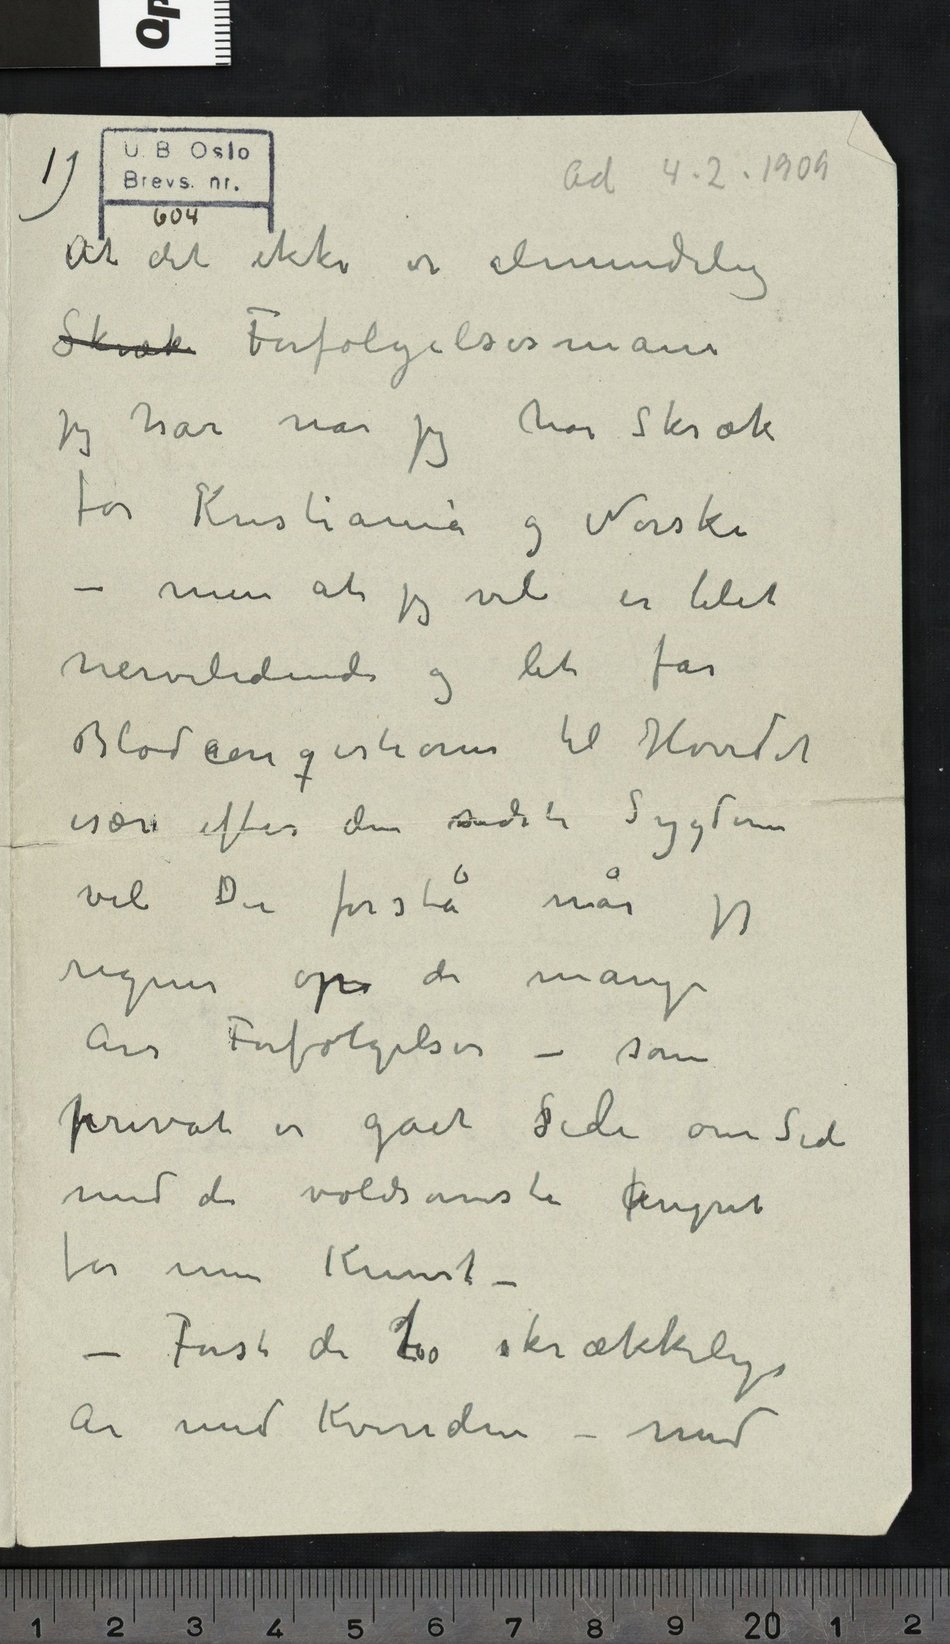 Op
1)
U. B. Oslo
Brevs. nr.
604
Ad 4.2.1909
At det ikke er almindelig
Skræk Forfølgelsesmani
jeg har når jeg har Skræk
for Kristiania og Norske
– men at jeg vel er blet
nervelidende og let får
Blodcongestioner til Hovedet
især efter den sidste Sygdom
vel De forstå når jeg
regner op de mange
Års Forfølgelser – som
privat er gået Side om Side
med de voldsomste Angreb
for min Kunst –
– Først de to skrækkelige
År med Kvinden – med
1 2 3 4 5 6 7 8 9 20 1 2